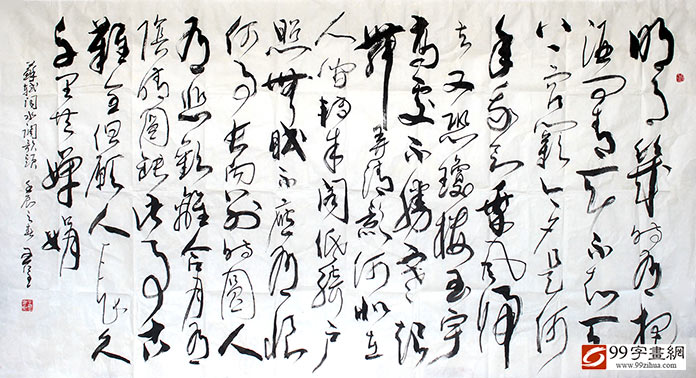 明月幾時有把
酒問青天不知天
上宮闕今夕是何
年我欲乘風歸
去又恐瓊樓玉宇
高處不勝寒起
舞弄清影何似在
人間轉朱閣低綺戶
照無眠不應有恨
何事長向別時圓人
有悲歡離合月有
陰晴圓缺此事古
難全但願人長久
千里共嬋娟
蘇軾詞水調歌頭 壬辰之春
99字畫網
www.99zihua.com